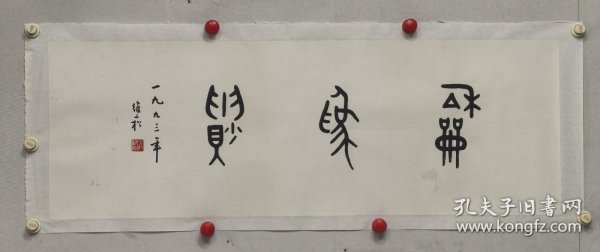 龢為貴
一九九三年
孔夫子旧书网
www.kongfz.com